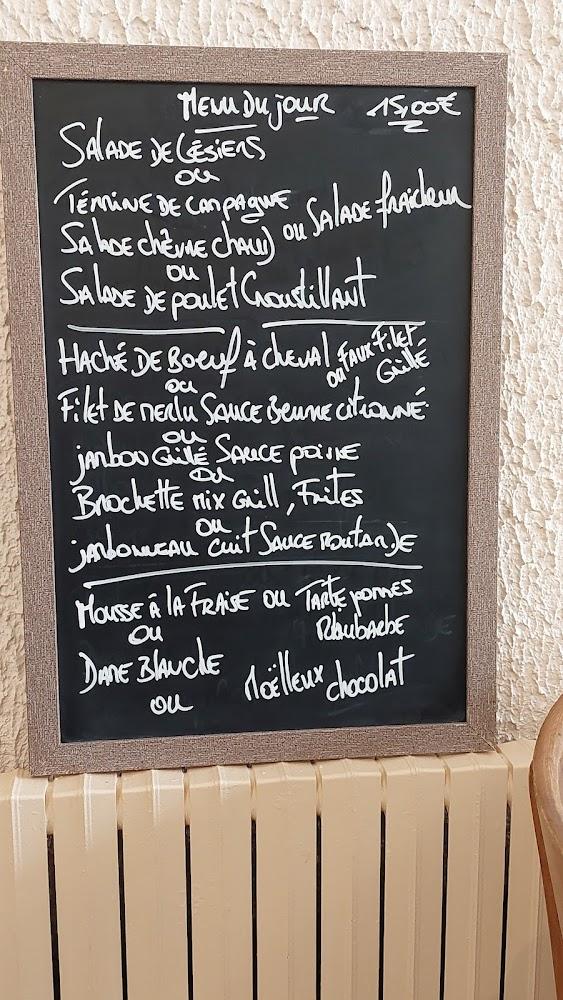 Menu du jour 15,00€
Salade de Gésiers
ou
Terrine de campagne
Salade chèvre chaud ou Salade fraîcheur
ou
Salade de poulet Croustillant
Haché de Boeuf à cheval ou Faux Filet Grillé
ou
Filet de merlu Sauce Beurre citronné
ou
jambon Grillé Sauce poivre
ou
Brochette mix Grill, Frites
ou
jambonneau cuit Sauce moutarde
Mousse à la Fraise ou Tarte pommes
Rhubarbe
ou
Dame Blanche
ou Moëlleux chocolat